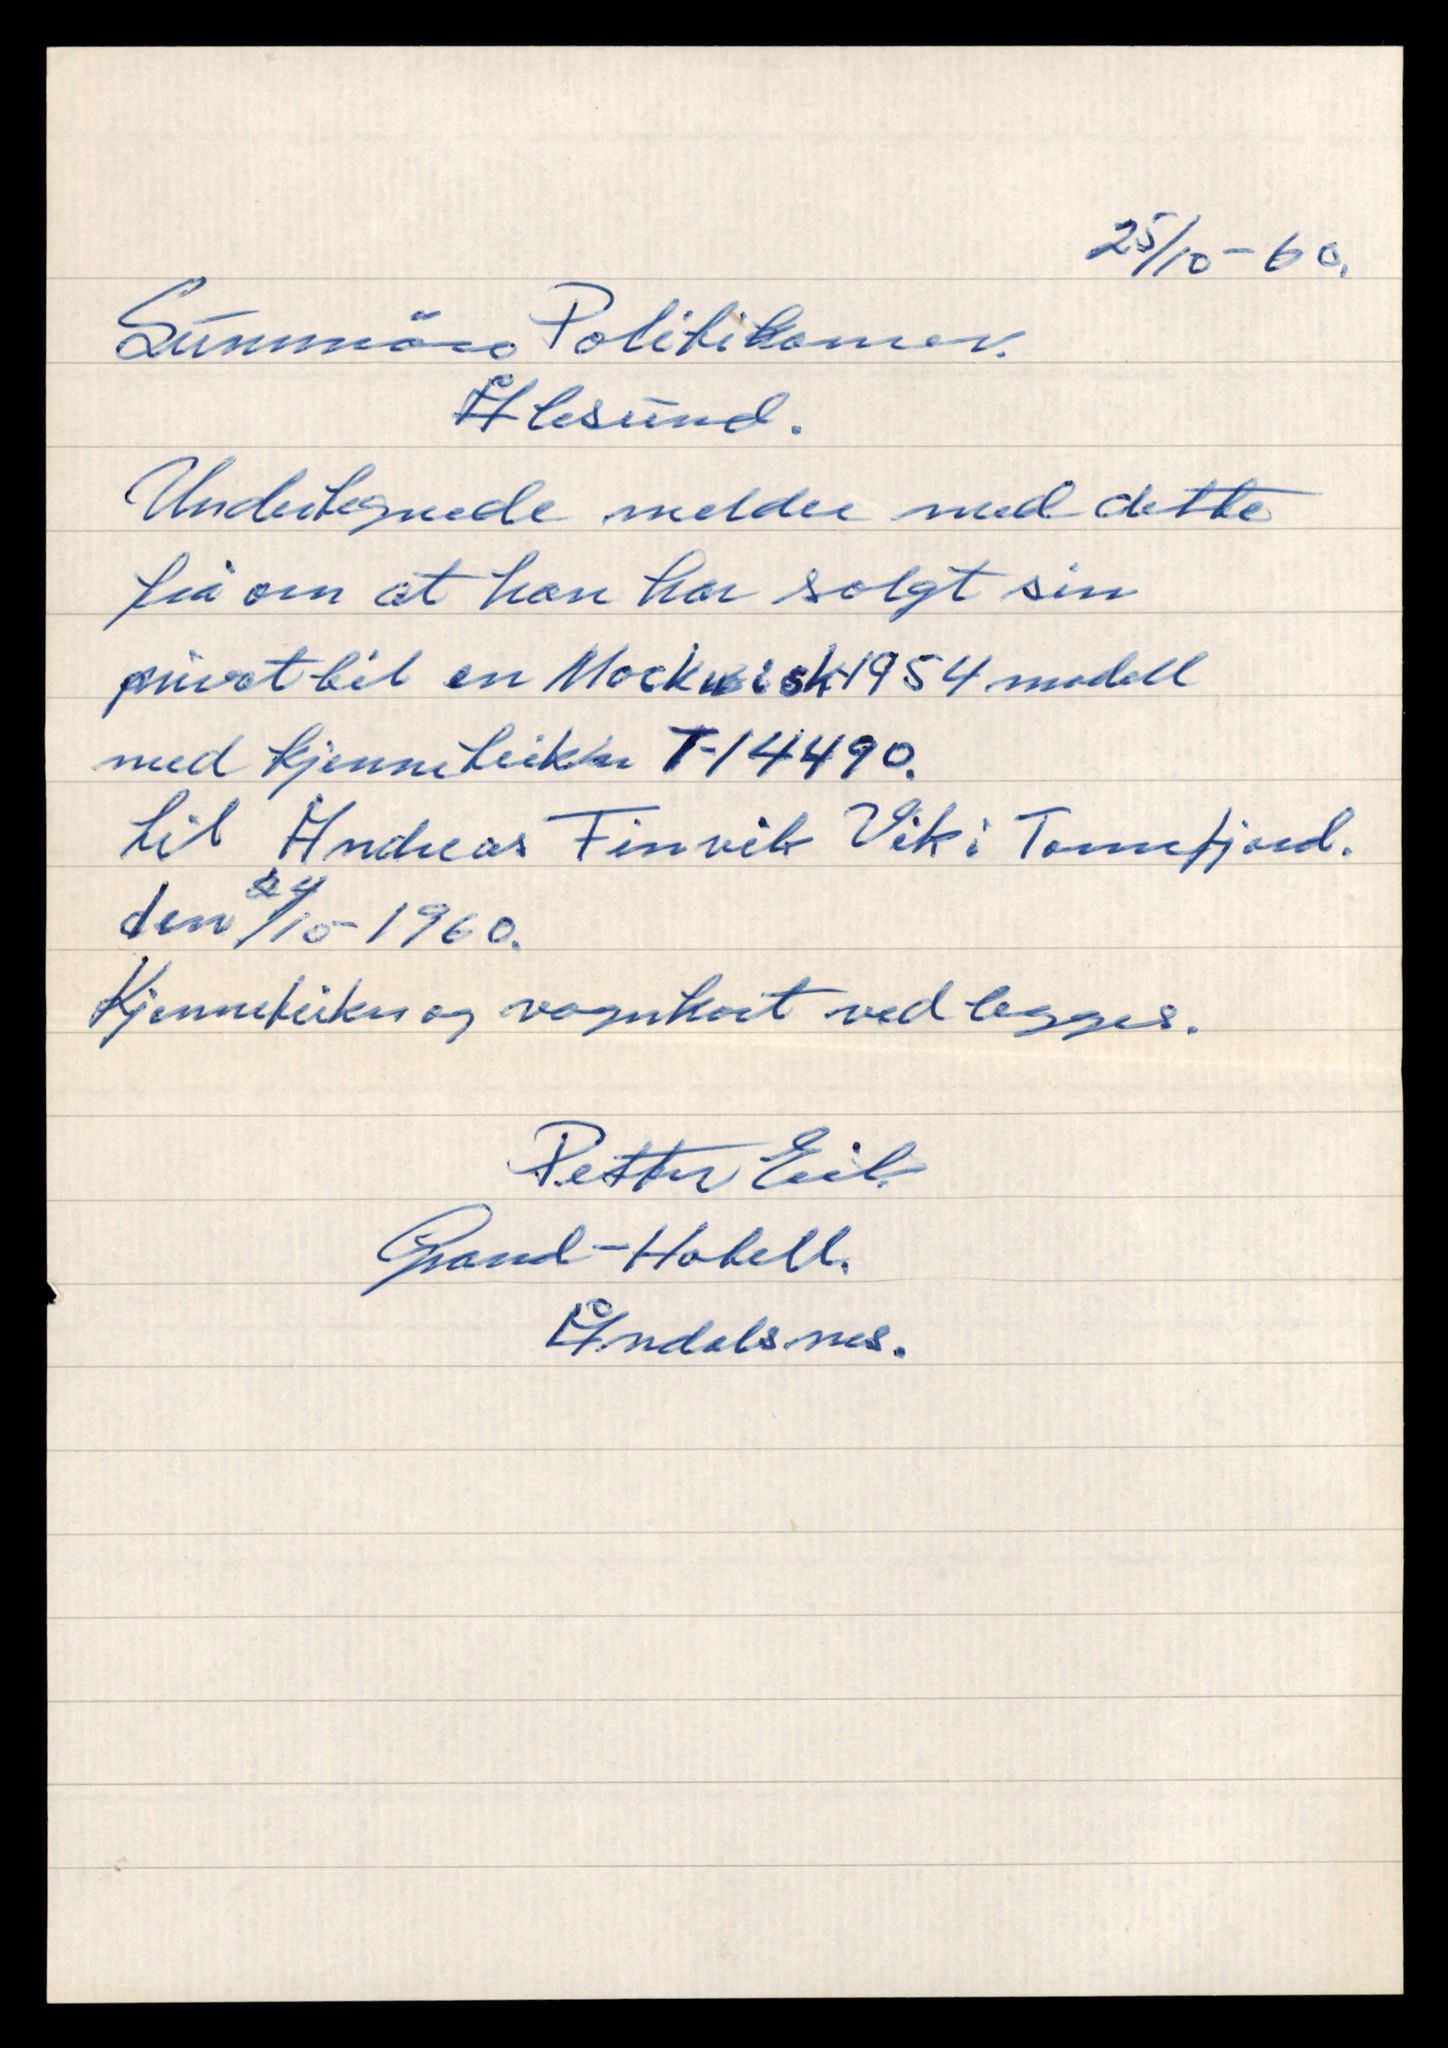 25/10-60.
Sunnmöre Politikamer.
Ålesund.
Undertegnede melder med dette
frå om at han har solgt sin
privat bil en Mockwisk 1954 modell
med kjenneteikn T-14490.
til Andreas Finvik Vik i Tomrefjord.
den 24/10-1960.
Kjenneteikn og vognkort vedlegges.
Petter Eik.
Grand-Hotell.
Åndalsnes.